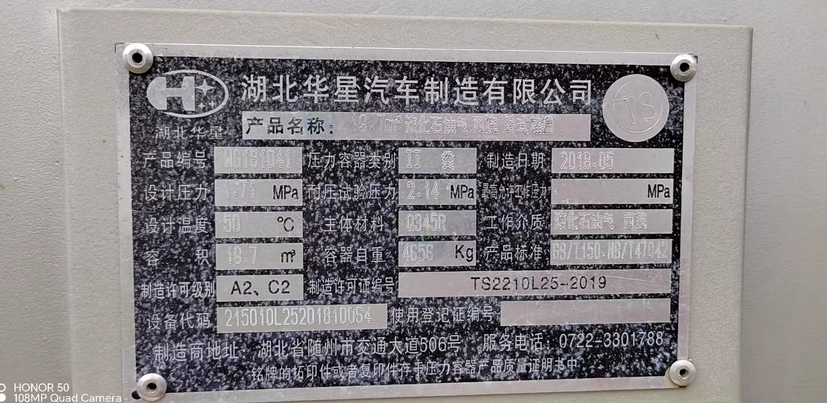 湖北华星汽车制造有限公司
湖北华星
TS
产品名称: m³ 液化石油气
产品编号 压力容器类别 II 制造日期 2018.05
设计压力 MPa 耐压试验压力 2.14 MPa MPa
设计温度 50 ℃ 主体材料 Q345R 工作介质 液化石油气
容积 m³ 容器自重 Kg 产品标准 NB/T47042
制造许可级别 A2、C2 制造许可证编号 TS2210L25-2019
设备代码 使用登记证编号
制造商地址: 湖北省随州市交通大道506号 服务电话: 0722-3301788
铭牌的拓印件或者复印件存于压力容器产品质量证明书中
HONOR 50
108MP Quad Camera